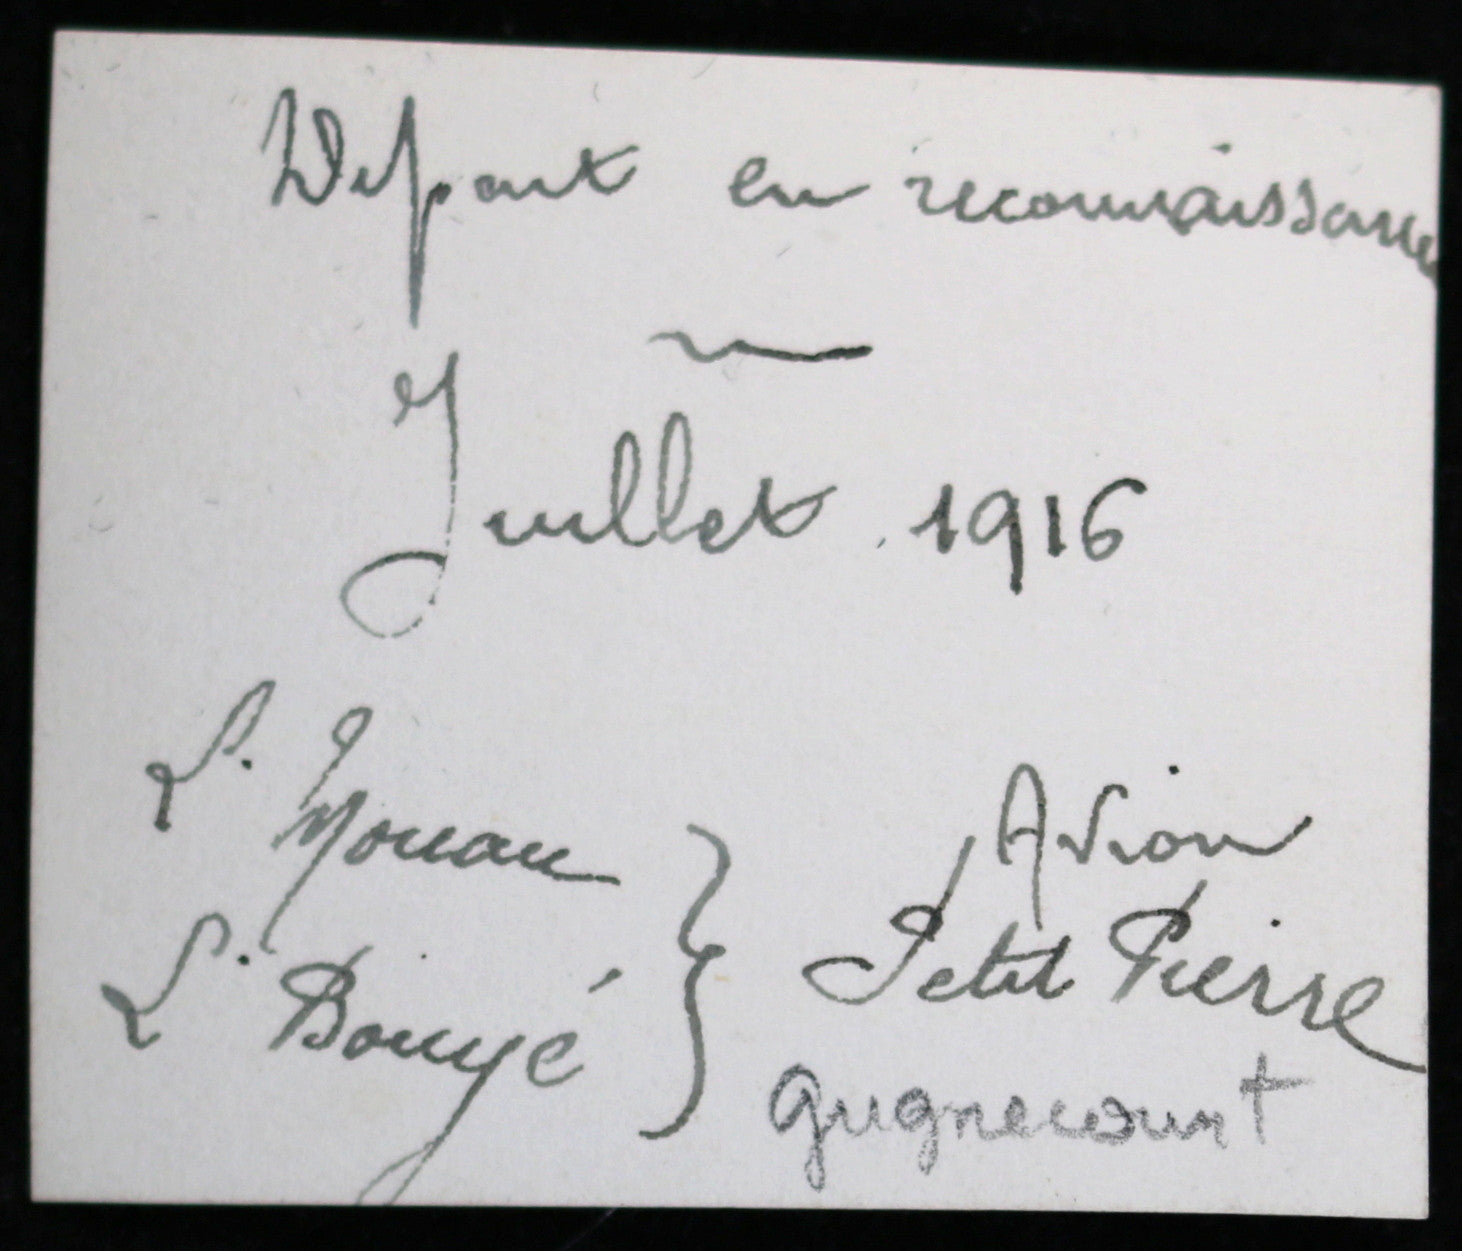 Départ en reconnaissance
Juillet 1916
Lt. Moreau
Lt. Bouyé
Avion
Petit Pierre
Gugnecourt